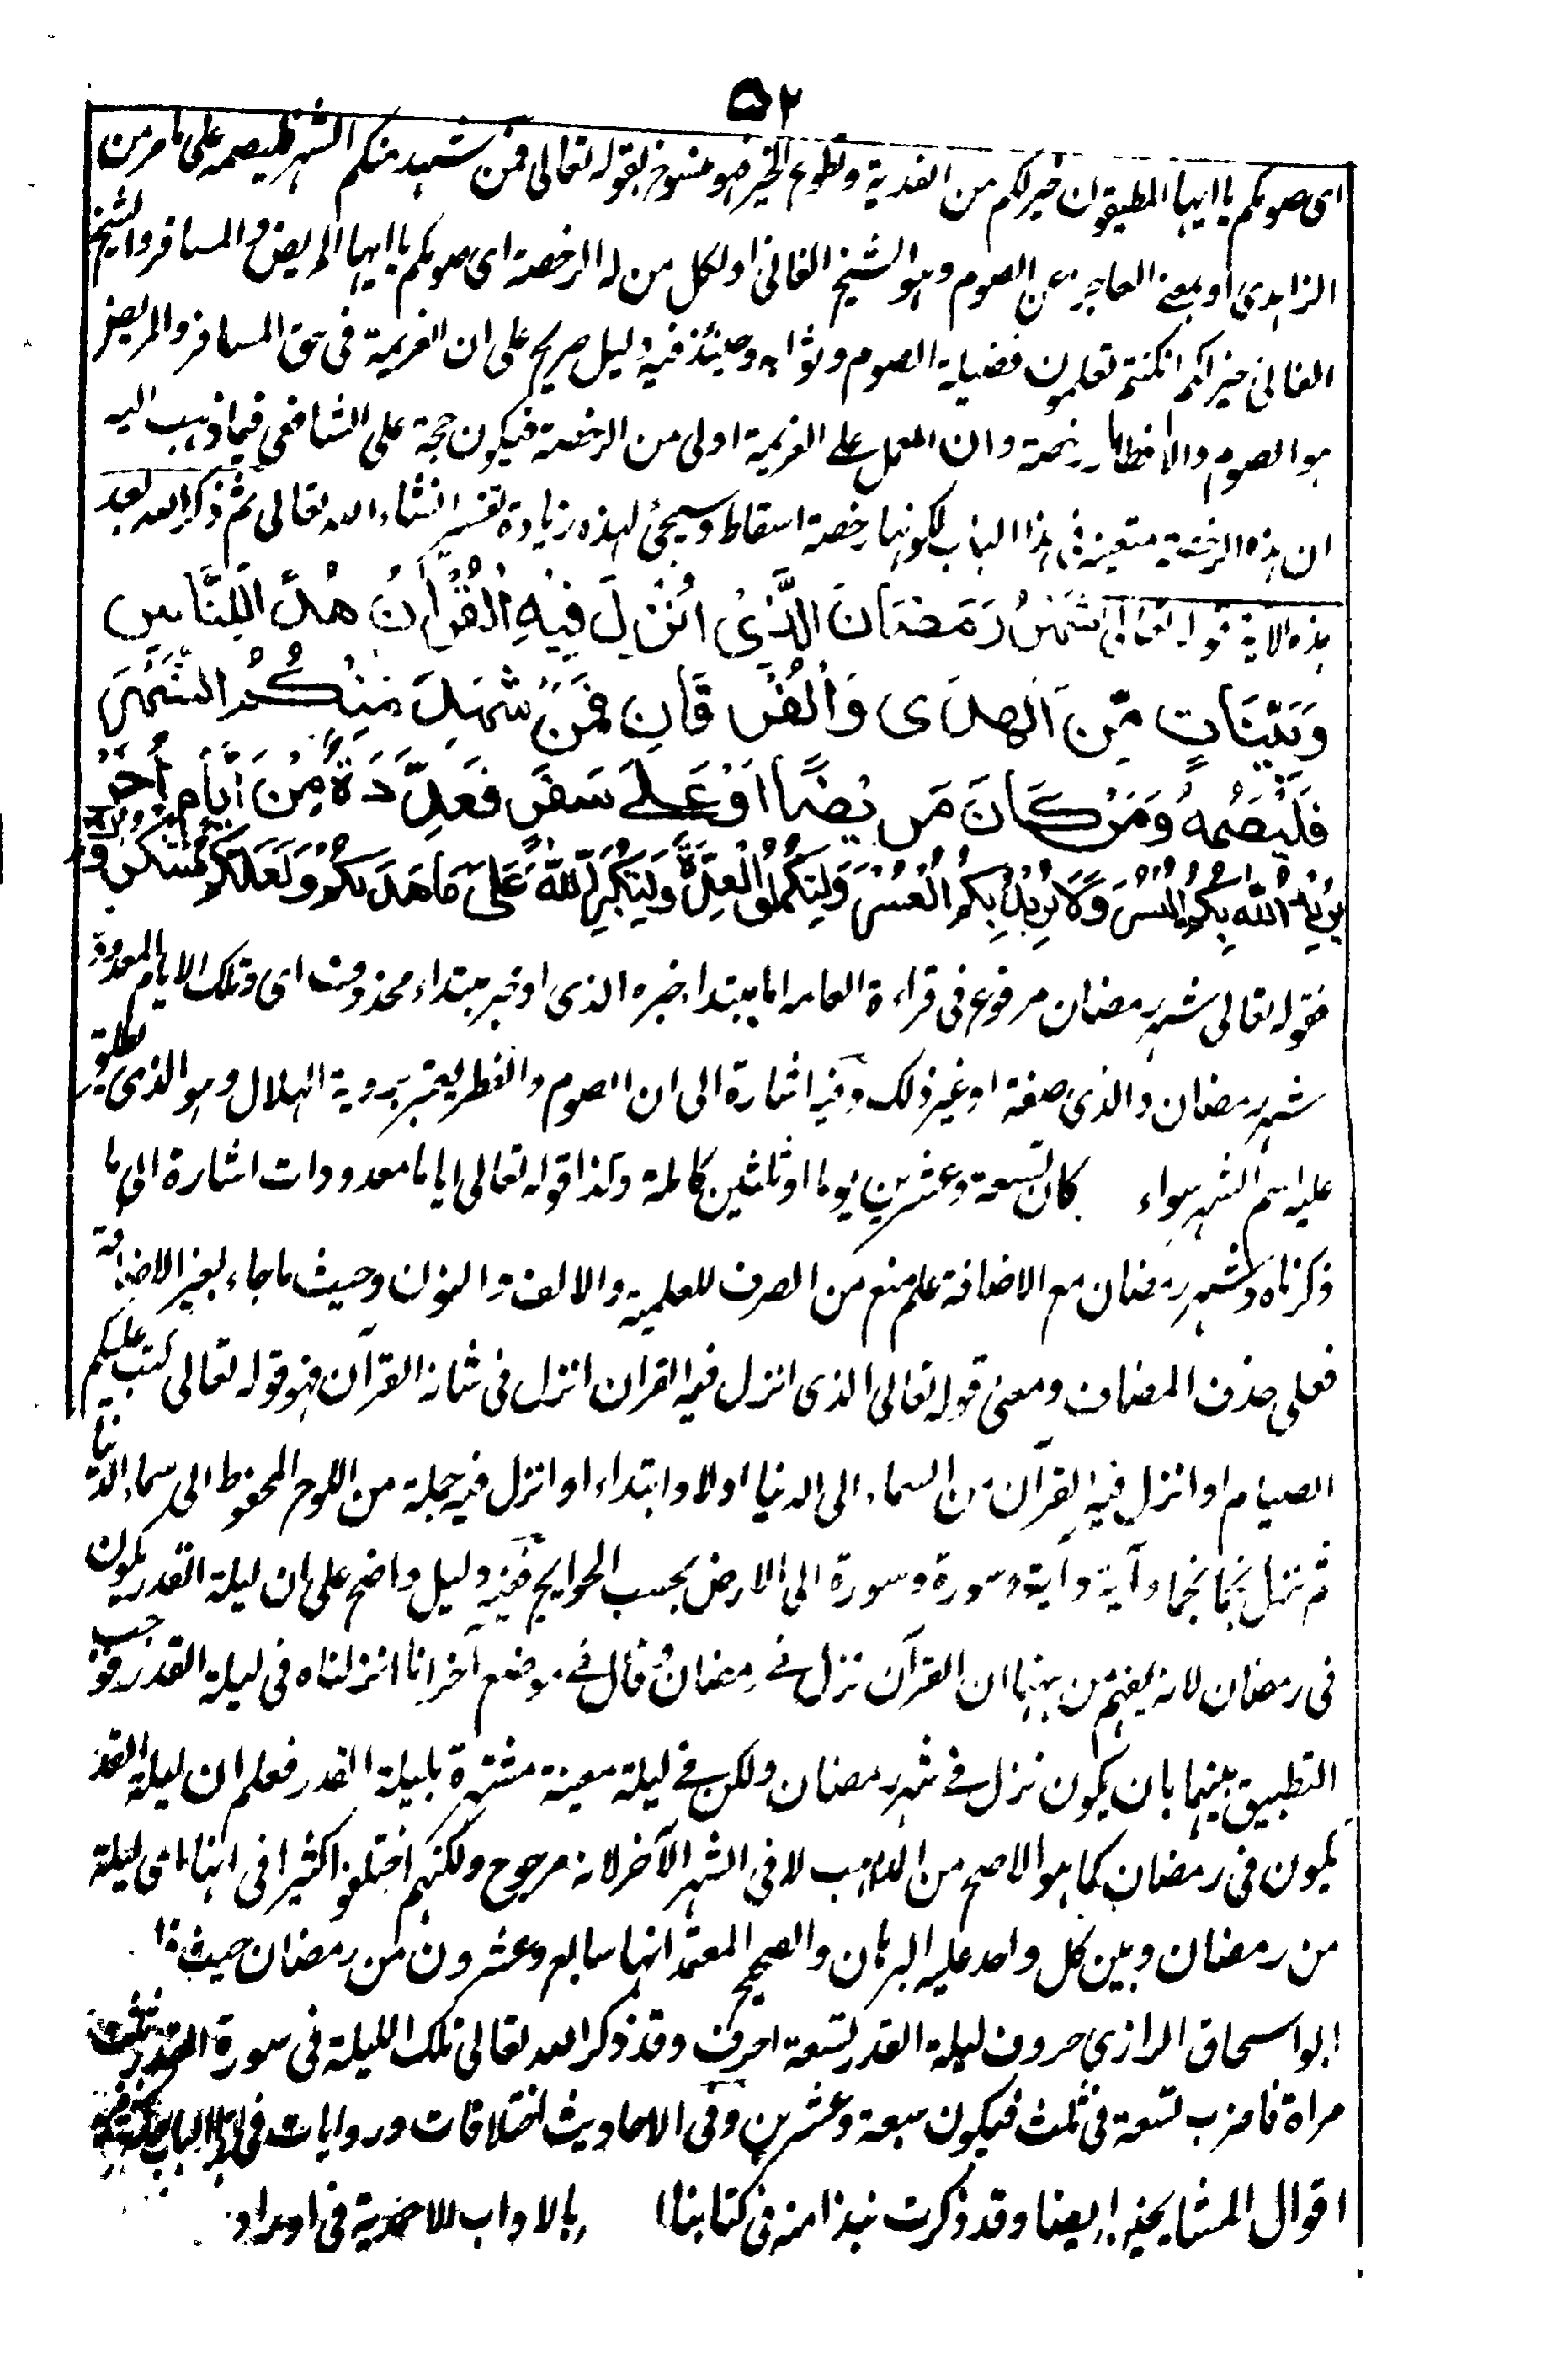 ٥٢
اى صومكم يا ايها المطيقون خير لكم من الفدية وتطوع الخير فهو منسوخ بقوله تعالى فمن شهد منكم الشهر فليصمه على ما مر من
الزاهدى او بمعنى العاجز عن الصوم وهو الشيخ الفانى او لكل من له الرخصة اى صومكم يا ايها المريض والمسافر والشيخ
الفانى خير لكم ان كنتم تعلمون فضيلة الصوم وثوابه وحينئذ فيه دليل صريح على ان العزيمة فى حق المسافر والمريض
هو الصوم والافطار رخصة وان العمل على العزيمة اولى من الرخصة فيكون حجة على الشافعى فيما ذهب اليه
ان هذه الرخصة متعينة فى هذا الباب لكونها رخصة اسقاط وسيجئ لهذه زيادة تفسير انشاء الله تعالى ثم ذكر الله بعد
هذه الاية قوله تعالى شَهْرُ رَمَضَانَ الَّذِىْ اُنْزِلَ فِيْهِ الْقُرْاٰنُ هُدًى لِّلنَّاسِ
وَبَيِّنَاتٍ مِّنَ الْهُدٰى وَالْفُرْقَانِ فَمَنْ شَهِدَ مِنْكُمُ الشَّهْرَ
فَلْيَصُمْهُ وَمَنْ كَانَ مَرِيْضًا اَوْ عَلٰى سَفَرٍ فَعِدَّةٌ مِّنْ اَيَّامٍ اُخَرَ
يُرِيْدُ اللّٰهُ بِكُمُ الْيُسْرَ وَلَا يُرِيْدُ بِكُمُ الْعُسْرَ وَلِتُكْمِلُوا الْعِدَّةَ وَلِتُكَبِّرُوا اللّٰهَ عَلٰى مَا هَدٰىكُمْ وَلَعَلَّكُمْ تَشْكُرُوْنَ
فقوله تعالى شهر رمضان مرفوع فى قراءة العامه اما مبتداء خبره الذى او خبر مبتداء محذوف اى وتلك الايام المعدودة
شهر رمضان والذى صفة او غير ذلك وفيه اشارة الى ان الصوم والفطر يعتبر بروية الهلال وهو الذى يطلق
عليه اسم الشهر سواء كان تسعة وعشرين يوما او ثلثين كاملة وكذا قوله تعالى اياما معدودات اشارة الى ما
ذكرناه وشهر رمضان مع الاضافة علم منع من الصرف للعلمية والالف والنون وحيث ما جاء بغير الاضافة
فعلى حذف المضاف ومعنى قوله تعالى الذى انزل فيه القران انزل فى شانه القرآن فهو قوله تعالى كتب عليكم
الصيام او انزل فيه القرآن من السماء الى الدنيا اولا وابتداء او انزل فيه جملة من اللوح المحفوظ الى سماء الدنيا
ثم نزل نجما نجما وآية وآية وسورة وسورة الى الارض بحسب الحوايج ففيه دليل واضح على ان ليلة القدر يكون
فى رمضان لانه يفهم من ههنا ان القرآن نزل فى رمضان وقال فى موضع آخر انا انزلناه فى ليلة القدر فوجب
التطبيق بينهما بان يكون نزل فى شهر رمضان ولكن فى ليلة معينة مشتهرة بليلة القدر فعلم ان ليلة القدر
يكون فى رمضان كما هو الاصح من المذاهب لا فى الشهر الآخر لانه مرجوح ولكنهم اختلفوا كثيرا فى انها اى ليلة
من رمضان وبين كل واحد عليه البرهان والصحيح المعتمد انها سابع وعشرون من رمضان حيث
ابو اسحاق الرازي حروف ليلة القدر تسعة احرف وقد ذكر الله تعالى تلك الليلة فى سورة القدر ثلث
مراة فاضرب تسعة فى ثلث فيكون سبعة وعشرين وفى الاحاديث اختلافات وروايات فى هذا الباب
اقوال المشايخ ايضا وقد ذكرت نبذا منه فى كتابنا بالاداب الاحمدية فى اوراد